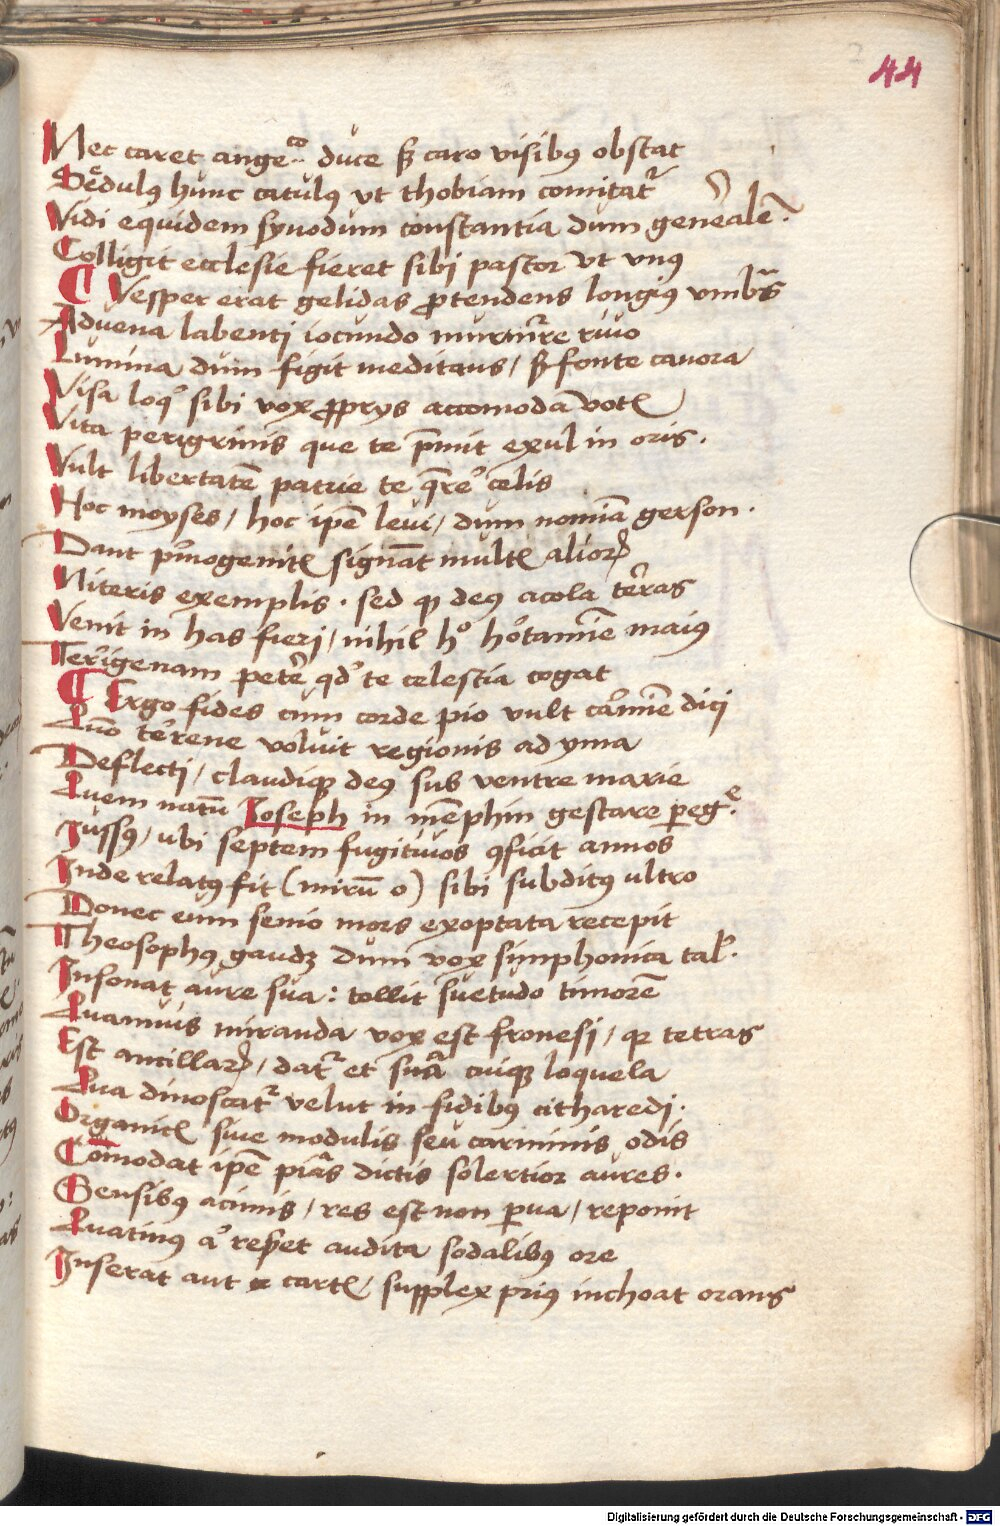 44
Nec caret ange.co duce sꝫ caro visibꝰ obstat
Sedulꝰ hunc catulꝰ vt thobiam comitat᷑
Vidi equidem synodum constantia dum generale᷑
Colligit ecclesie fieret sibi pastor vt vnꝰ
Vesper erat gelidas ꝓtendens longiꝰ vmbras
Aduena labenti iocundo murmure riuo
Lumina dum figit meditans / fonte canora
Visa loqͥ sibi vox ꝓprys accomoda votis
Vita perigrinis que te p̄mit exul in oris .
Vult libertatē patrie te q̄rere celis
Hoc moyses / hoc ip̄e leui / dum nomīa gerson .
Dant pͥmogenitis signāt multis alioꝝ
Niteris exemplis . sed ꝙ deꝰ acola terras
Venit in has fieri / nihil hͦ hortamīe maiꝰ
Terrigenam petere qd te celestia cogat
Ergo fides cum corde pio vult carmīe dici
Quō terrene voluit regionis ad yma
Deflecti / claudiqꝫ deꝰ sub ventre marie
Quem natū Ioseph in mēphim gestare ꝑeg.e
Iussꝰ / vbi septem fugitiuos ꝯficit annos
Inde relatꝰ fit (mirū o) sibi subditꝰ vltro
Donec eum senio mors exoptata recepit
Theosophꝰ gaudꝫ dum vox simphonica tal᷑.
Insonat aure sua : tollit suetudo timorē
Quamuis miranda vox est fronesi / ꝙ tetras
Est ancillaꝝ / dat᷑ et sua cuiqꝫ loquela
Qua dinoscat᷑ velut in fidibꝰ citharedi .
Organicis siue modulis seu carminis odis
Cōmodat ip̄e pias dictis solertior aures .
Sensibꝰ acimis / res est non ꝑua / reponit
Quatinꝰ aͦ referet audita sodalibꝰ ore
Inserat aut cartis / supplex priꝰ inchoat orans
Digitalisierung gefördert durch die Deutsche Forschungsgemeinschaft - DFG